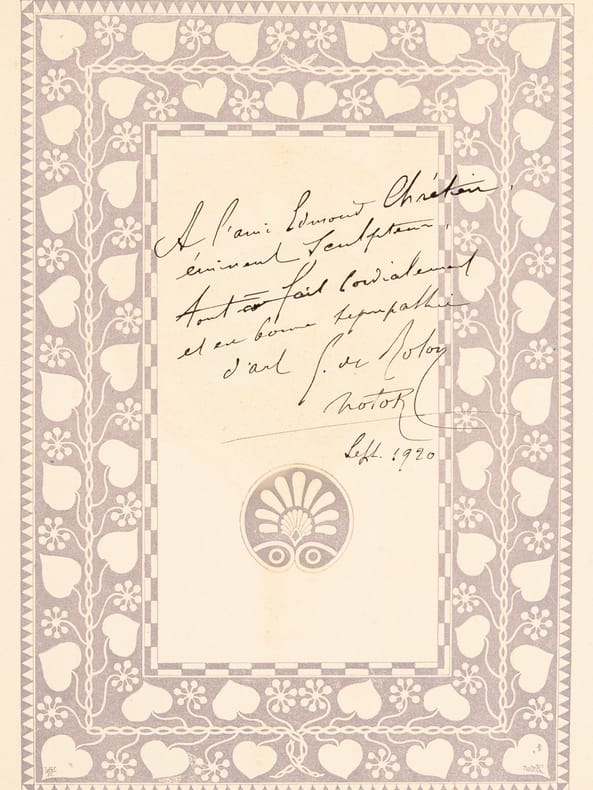 A l'ami Edmond Chrétien,
éminent sculpteur,
tout à fait cordialement
et en bonne sympathie
d'art G. de Roton
Notor
Sept. 1920